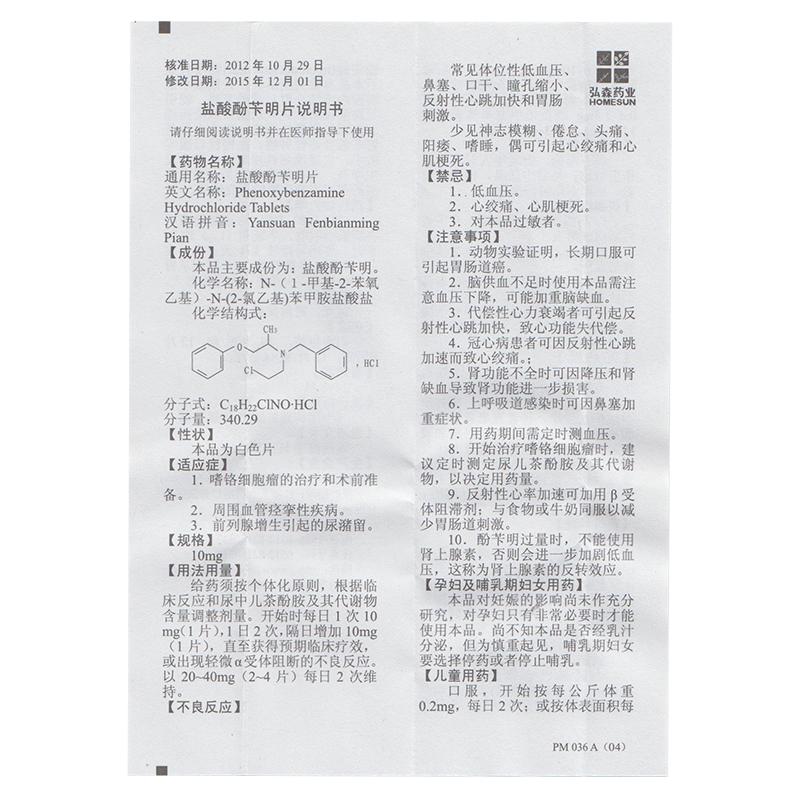 核准日期：2012 年 10 月 29 日
修改日期：2015 年 12 月 01 日
盐酸酚苄明片说明书
请仔细阅读说明书并在医师指导下使用
【药物名称】
通用名称：盐酸酚苄明片
英文名称：Phenoxybenzamine
Hydrochloride Tablets
汉语拼音：Yansuan Fenbianming
Pian
【成份】
本品主要成份为：盐酸酚苄明。
化学名称：N-（1-甲基-2-苯氧
乙基）-N-(2-氯乙基)苯甲胺盐酸盐
化学结构式：
CH₃
O
N
Cl
, HCl
分子式：C₁₈H₂₂ClNO·HCl
分子量：340.29
【性状】
本品为白色片
【适应症】
1．嗜铬细胞瘤的治疗和术前准
备。
2．周围血管痉挛性疾病。
3．前列腺增生引起的尿潴留。
【规格】
10mg
【用法用量】
给药须按个体化原则，根据临
床反应和尿中儿茶酚胺及其代谢物
含量调整剂量。开始时每日 1 次 10
mg（1 片），1 日 2 次，隔日增加 10mg
（1 片），直至获得预期临床疗效，
或出现轻微α受体阻断的不良反应。
以 20~40mg（2~4 片）每日 2 次维
持。
【不良反应】
常见体位性低血压、
鼻塞、口干、瞳孔缩小、
反射性心跳加快和胃肠
刺激。
少见神志模糊、倦怠、头痛、
阳痿、嗜睡，偶可引起心绞痛和心
肌梗死。
【禁忌】
1．低血压。
2．心绞痛、心肌梗死。
3．对本品过敏者。
【注意事项】
1．动物实验证明，长期口服可
引起胃肠道癌。
2．脑供血不足时使用本品需注
意血压下降，可能加重脑缺血。
3．代偿性心力衰竭者可引起反
射性心跳加快，致心功能失代偿。
4．冠心病患者可因反射性心跳
加速而致心绞痛。；
5．肾功能不全时可因降压和肾
缺血导致肾功能进一步损害。
6．上呼吸道感染时可因鼻塞加
重症状。
7．用药期间需定时测血压。
8．开始治疗嗜铬细胞瘤时，建
议定时测定尿儿茶酚胺及其代谢
物，以决定用药量。
9．反射性心率加速可加用 β 受
体阻滞剂；与食物或牛奶同服以减
少胃肠道刺激。
10．酚苄明过量时，不能使用
肾上腺素，否则会进一步加剧低血
压，这称为肾上腺素的反转效应。
【孕妇及哺乳期妇女用药】
本品对妊娠的影响尚未作充分
研究，对孕妇只有非常必要时才能
使用本品。尚不知本品是否经乳汁
分泌，但为慎重起见，哺乳期妇女
要选择停药或者停止哺乳。
【儿童用药】
口服，开始按每公斤体重
0.2mg，每日 2 次；或按体表面积每
弘森药业
HOMESUN
PM 036 A（04）